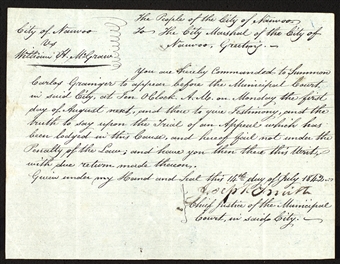 The People of the City of Nauvoo,
City of Nauvoo
To the City Marshal of the City of
vs
Nauvoo, Greeting.
William H. McGraw
You are Hereby Commanded to Summon
Carlos Grainger to appear before the Municipal Court,
in said City, at Ten O'Clock A.M. on Monday the first
day of August next, and there to give Testimony, and the
truth to say upon the Trial of an Appeal which has
been Lodged in this Cause, and hereof fail not under the
Penalty of the Law; and have you then there this Writ,
with due return made thereon.
Given under my Hand and Seal this 14th day of July 1842.
Joseph Smith
Chief Justice of the Municipal
Court, in said City.